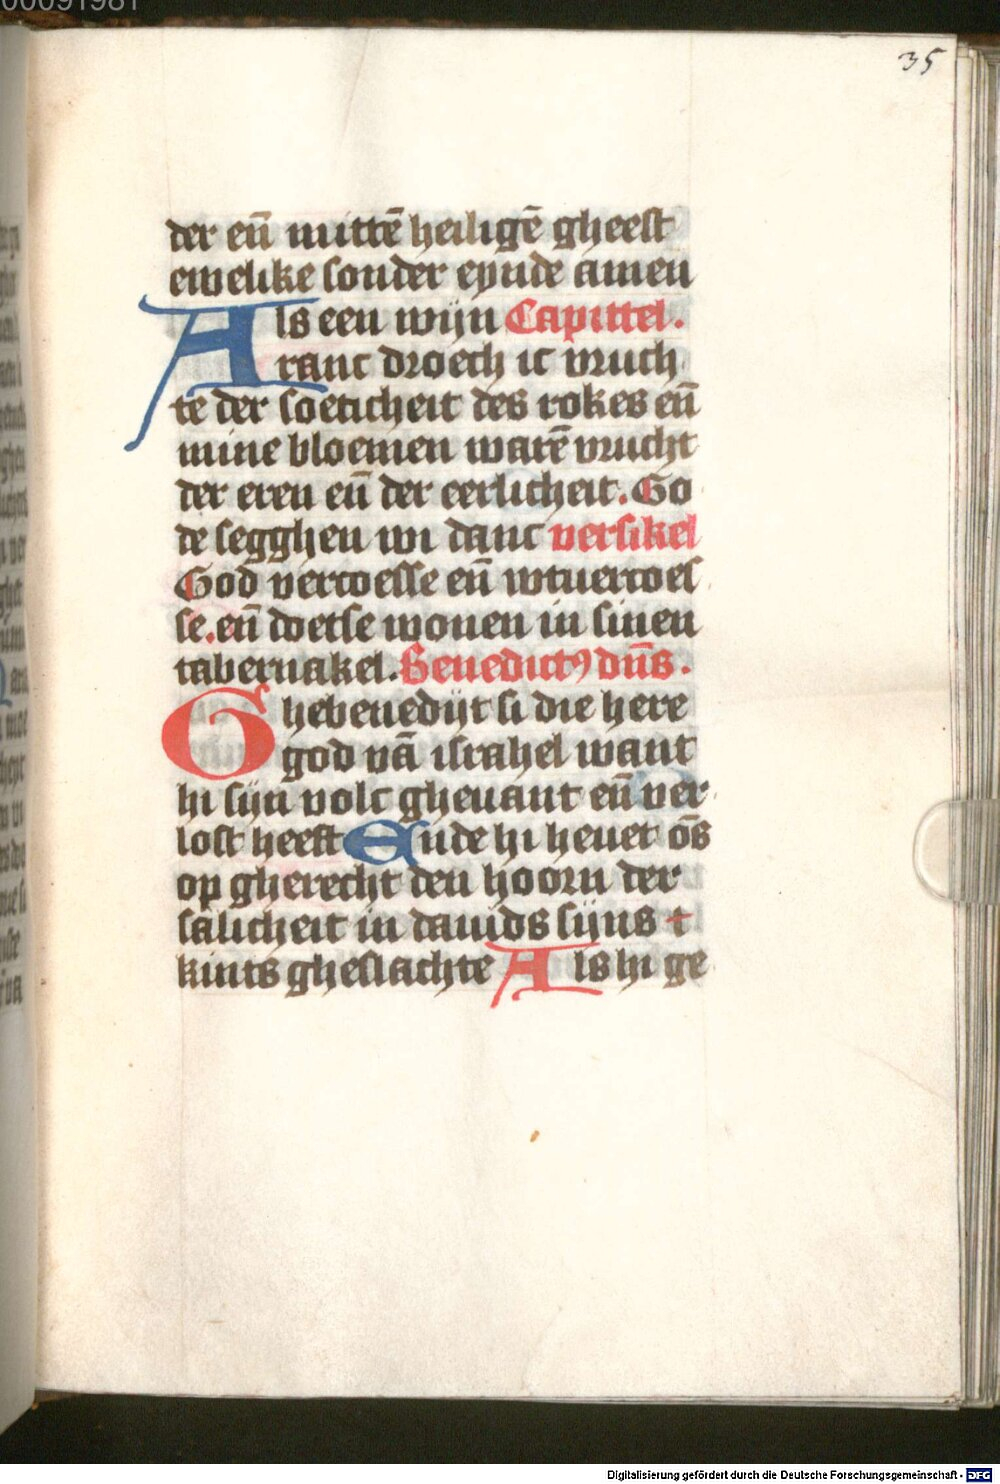 00091981
35
der eñ mittē heiligē gheest
ewelike sonder eynde amen
Als een wijn Capittel.
ranc droech ic vruch
te der soeticheit des rokes eñ
mine bloemen warē vrucht
der eren eñ der eerlicheit. Go
de segghen wi danc versikel
God vercoesse eñ wtuercoes
se. eñ doetse wonen in sinen
tabernakel. Benedictꝰ dn̄s.
Ghebenedijt si die here
god vā israhel want
hi sijn volc gheuant eñ ver
lost heeft Ende hi heuet ōs
op gherecht den hoorn der
salicheit in dauids sijns
kints gheslachte Als hi ge
Digitalisierung gefördert durch die Deutsche Forschungsgemeinschaft - DFG